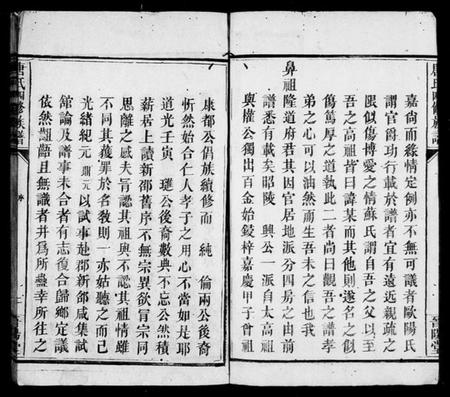 嘉尙而緣情定例亦不無可議者歐陽氏
謂官爵功行載於譜者宜有遠近親疏之
限似傷博愛之情蘇氏謂自吾之父以至
吾之高祖皆曰諱某而其他則遂名之似
傷篤厚之道執此二者尙曰觀吾之譜孝
弟之心可以油然而生吾未之信也我
鼻祖隆道府君其因官居地派分四房之由前
譜悉有載矣昭陵 興公一派自太高祖
與權公獨出百金始鋟梓嘉慶甲子曾祖
晉陽堂
康都公倡族續修而 純 倫兩公後奇
忻然始合仁人孝子之用心不當如是耶
道光壬寅 璉公後奇數典不忘公然積
薪居上讀新邵舊序不無宗異欲冒宗同
思離之感夫旨認其祖與不認其祖情雖
不同其獲罪於名敎則一亦姑聽之而已
光緖紀元 以試事赴郡新邵咸集試
館論及譜事未合者有志復合歸鄉定議
依然齟齬且無識者幷爲所蠱幸所往之
唐氏四修族譜
序